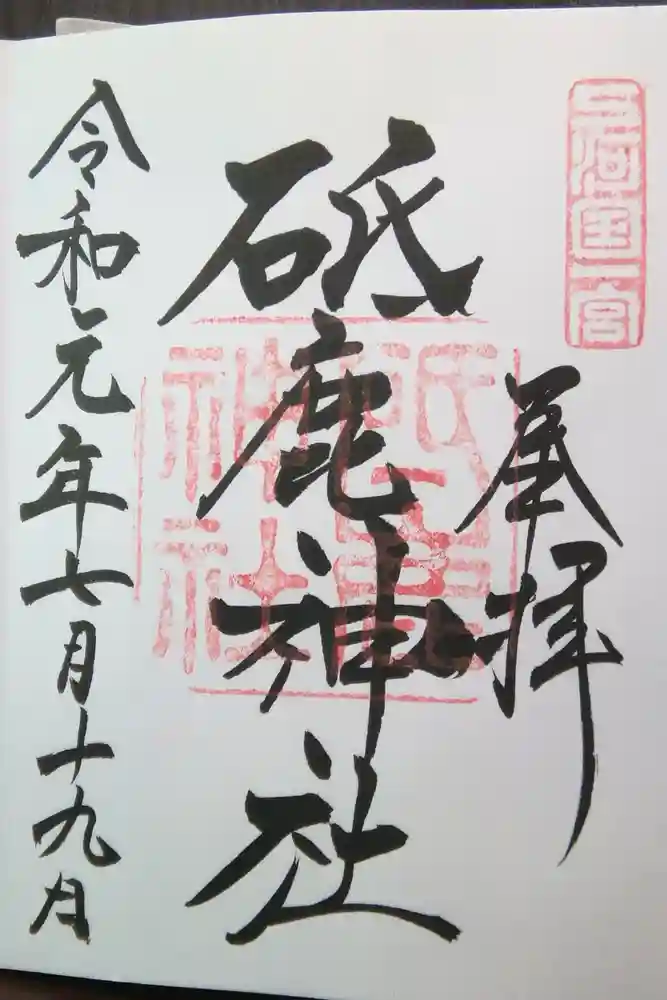 三河国一宮
奉拝
砥鹿神社
砥鹿神社
令和元年七月十九日